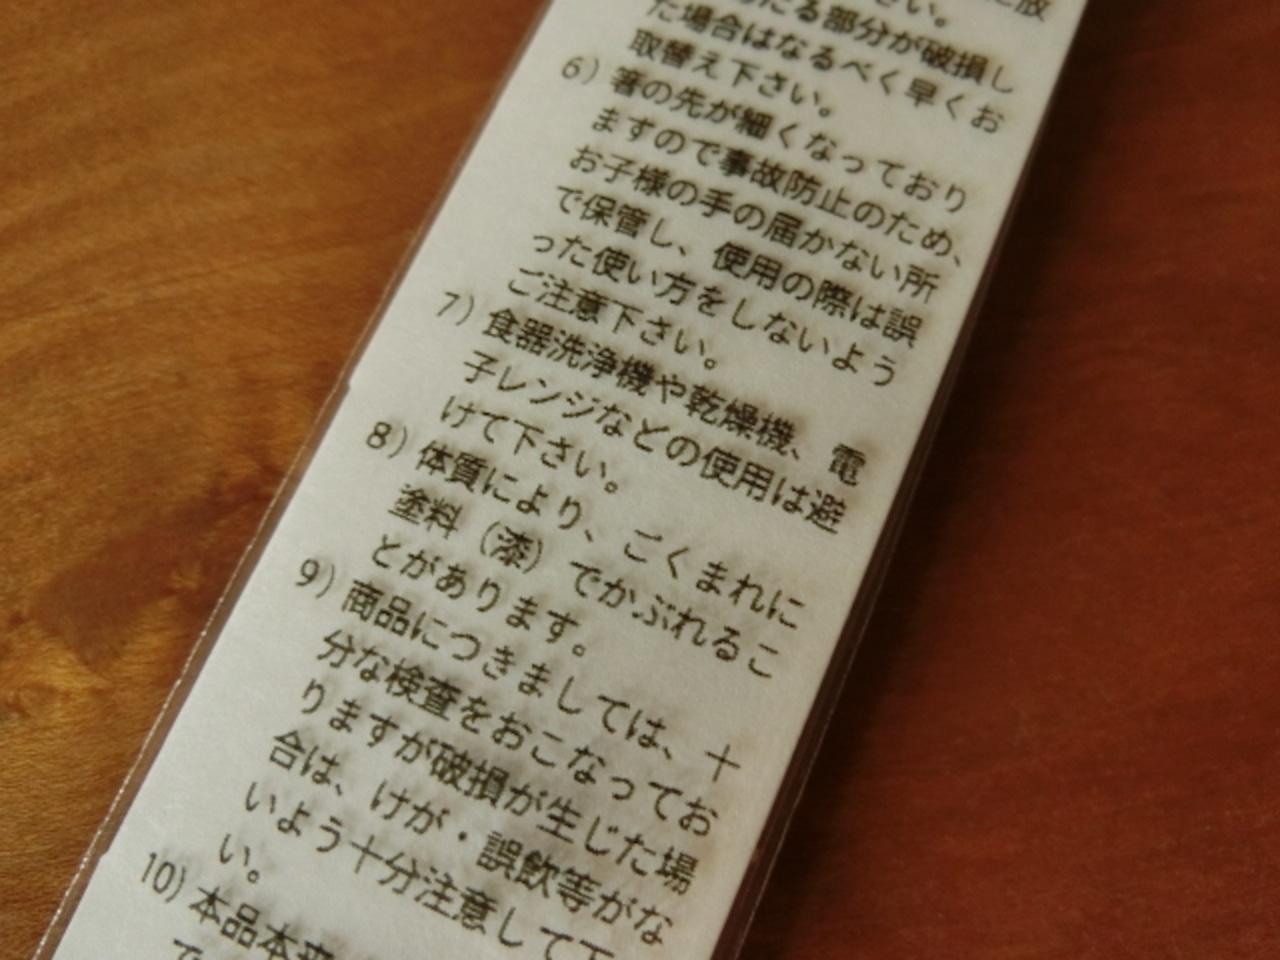 に放
さい。
たる部分が破損し
た場合はなるべく早くお
取替え下さい。
6）箸の先が細くなっており
ますので事故防止のため、
お子様の手の届かない所
で保管し、使用の際は誤
った使い方をしないよう
ご注意下さい。
7）食器洗浄機や乾燥機、電
子レンジなどの使用は避
けて下さい。
8）体質により、ごくまれに
塗料（漆）でかぶれるこ
とがあります。
9）商品につきましては、十
分な検査をおこなってお
りますが破損が生じた場
合は、けが・誤飲等がな
いよう十分注意して下
い。
10）本品本来
で